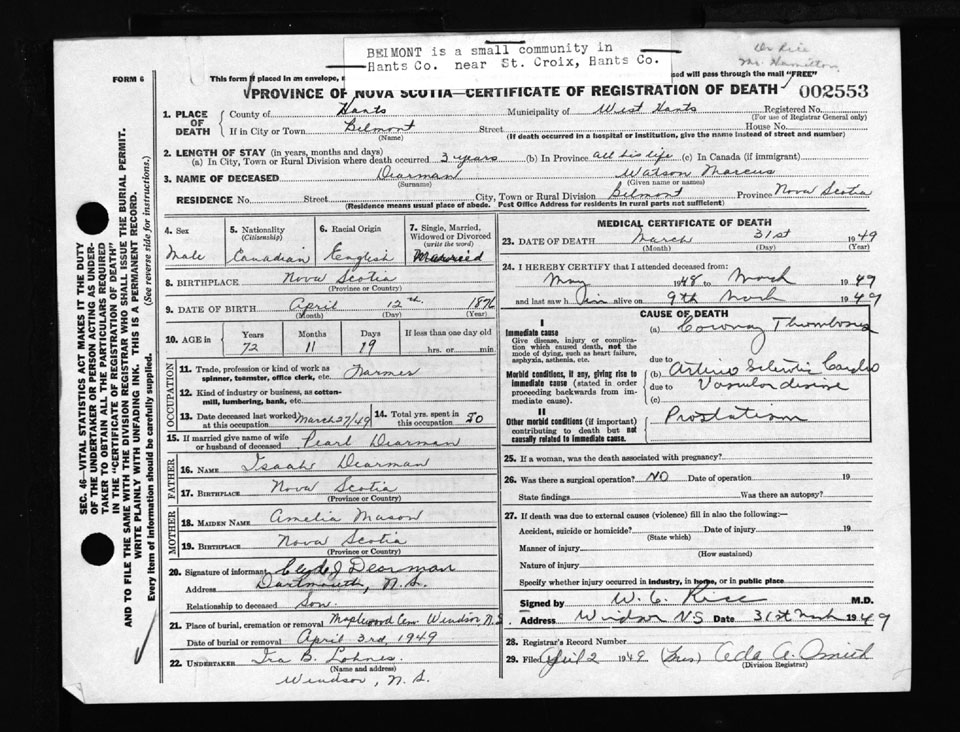 BEIMONT is a small community in
Hants Co. near St. Croix, Hants Co.
Dr Rice
Mr. Hamilton
FORM 6
This form if placed in an envelope, ssed will pass through the mail "FREE"
PROVINCE OF NOVA SCOTIA—CERTIFICATE OF REGISTRATION OF DEATH 002553
1. PLACE OF DEATH
County of Hants Municipality of West Hants Registered No.
(For use of Registrar General only)
If in City or Town Belmont Street House No.
(Name) (If death occurred in a hospital or institution, give the name instead of street and number)
2. LENGTH OF STAY (in years, months and days)
(a) In City, Town or Rural Division where death occurred 3 years (b) In Province all his life (c) In Canada (if immigrant)
3. NAME OF DECEASED Dearman Watson Marcus
(Surname) (Given name or names)
RESIDENCE No. Street City, Town or Rural Division Belmont Province Nova Scotia
(Residence means usual place of abode. Post Office Address for residents in rural parts not sufficient)
4. Sex 5. Nationality (Citizenship) 6. Racial Origin 7. Single, Married, Widowed or Divorced (write the word)
Male Canadian English Married
8. BIRTHPLACE Nova Scotia
(Province or Country)
9. DATE OF BIRTH April 12th. 1876
(Month) (Day) (Year)
10. AGE in Years Months Days If less than one day old
72 11 19 hrs. or min.
OCCUPATION
11. Trade, profession or kind of work as spinner, teamster, office clerk, etc. Farmer
12. Kind of industry or business, as cotton-mill, lumbering, bank, etc.
13. Date deceased last worked at this occupation March 27/49 14. Total yrs. spent in this occupation 50
15. If married give name of wife or husband of deceased Pearl Dearman
FATHER
16. NAME Isaah Dearman
17. BIRTHPLACE Nova Scotia
(Province or Country)
MOTHER
18. MAIDEN NAME Amelia Mason
19. BIRTHPLACE Nova Scotia
(Province or Country)
20. Signature of informant Clyde J Dearman
Address Dartmouth, N.S.
Relationship to deceased Son.
21. Place of burial, cremation or removal Maplewood Cem. Windsor N.S
Date of burial or removal April 3rd, 1949
22. UNDERTAKER Ira B. Lohnes
(Name and address)
Windsor, N.S.
MEDICAL CERTIFICATE OF DEATH
23. DATE OF DEATH March 31st 1949
(Month) (Day) (Year)
24. I HEREBY CERTIFY that I attended deceased from:
May 1948 to March 1949
and last saw him alive on 9th March 1949
CAUSE OF DEATH
I
Immediate cause
Give disease, injury or complication which caused death, not the mode of dying, such as heart failure, asphyxia, asthenia, etc.
(a) Coronary Thrombosis
due to
Morbid conditions, if any, giving rise to immediate cause (stated in order proceeding backwards from immediate cause).
(b) Arterio Sclerotic Cardio
due to Vascular disease
(c)
II
Other morbid conditions (if important) contributing to death but not causally related to immediate cause.
25. If a woman, was the death associated with pregnancy?
26. Was there a surgical operation? NO Date of operation 19
State findings Was there an autopsy?
27. If death was due to external causes (violence) fill in also the following:—
Accident, suicide or homicide? Date of injury 19
(State which)
Manner of injury
(How sustained)
Nature of injury
Specify whether injury occurred in industry, in home, or in public place
Signed by W. C. Rice M.D.
Address Windsor NS Date 31st March 1949
28. Registrar's Record Number
29. Filed April 2 1949 (Mrs) Ada A. Smith
(Division Registrar)
SEC. 46—VITAL STATISTICS ACT MAKES IT THE DUTY
OF THE UNDERTAKER OR PERSON ACTING AS UNDER-
TAKER TO OBTAIN ALL THE PARTICULARS REQUIRED
IN THE "CERTIFICATE OF REGISTRATION OF DEATH"
AND TO FILE THE SAME WITH THE DIVISION REGISTRAR WHO SHALL ISSUE THE BURIAL PERMIT.
WRITE PLAINLY WITH UNFADING INK. THIS IS A PERMANENT RECORD.
Every item of information should be carefully supplied. (See reverse side for instructions.)